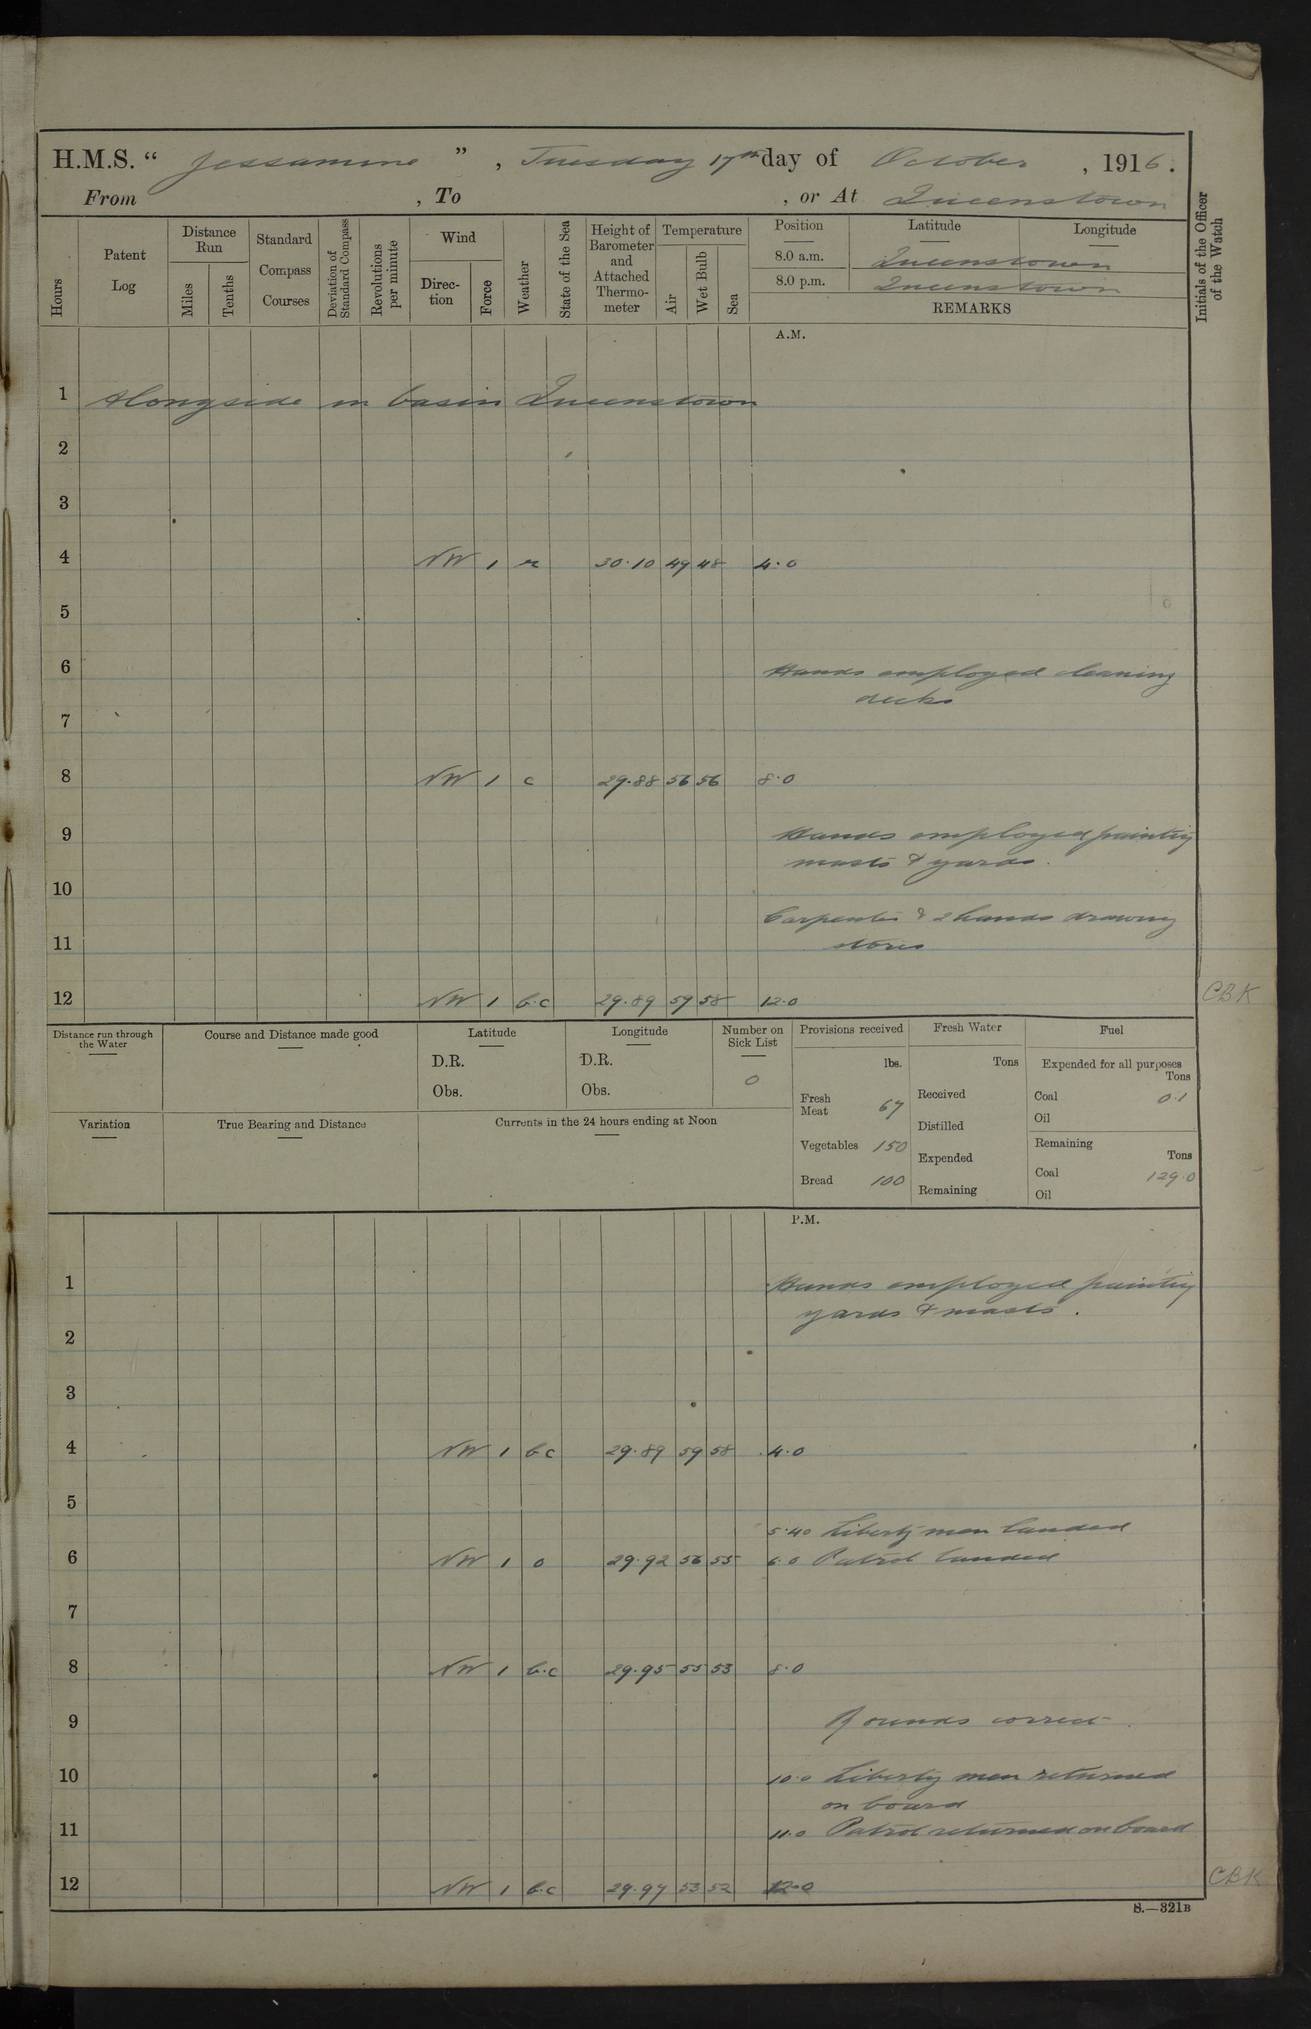 H.M.S. “ Jessamine ” , Tuesday 17th day of October , 1916 .
From , To , or At Queenstown
Hours
Patent Log
Distance Run
Miles
Tenths
Standard Compass Courses
Deviation of Standard Compass
Revolutions per minute
Wind
Direction
Force
Weather
State of the Sea
Height of Barometer and Attached Thermometer
Temperature
Air
Wet Bulb
Sea
Position Latitude Longitude
8.0 a.m. Queenstown
8.0 p.m. Queenstown
REMARKS
Initials of the Officer of the Watch
A.M.
1 Alongside in basin Queenstown
2
3
4 NW 1 r 30.10 49 48 4.0
5
6 Hands employed cleaning
decks
7
8 NW 1 c 29.88 56 56 8.0
9 Hands employed painting
masts & yards.
10
Carpenter & 2 hands drawing
11 stores
12 NW 1 b.c 29.89 59 58 12.0 CBK
Distance run through the Water
Course and Distance made good
Latitude
D.R.
Obs.
Longitude
D.R.
Obs.
Number on Sick List
0
Variation
True Bearing and Distance
Currents in the 24 hours ending at Noon
Provisions received
lbs.
Fresh Meat 67
Vegetables 150
Bread 100
Fresh Water
Tons
Received
Distilled
Expended
Remaining
Fuel
Expended for all purposes
Tons
Coal 0.1
Oil
Remaining
Tons
Coal 129.0
Oil
P.M.
1 Hands employed painting
yards & masts.
2
3
4 NW 1 b.c 29.89 59 58 4.0
5
5.40 Liberty men landed
6 NW 1 o 29.92 56 55 6.0 Patrol landed
7
8 NW 1 b.c 29.95 55 53 8.0
9 Rounds correct
10 10.0 Liberty men returned
on board
11 11.0 Patrol returned on board
12 NW 1 b.c 29.97 53 52 12.0 CBK
S.—321B